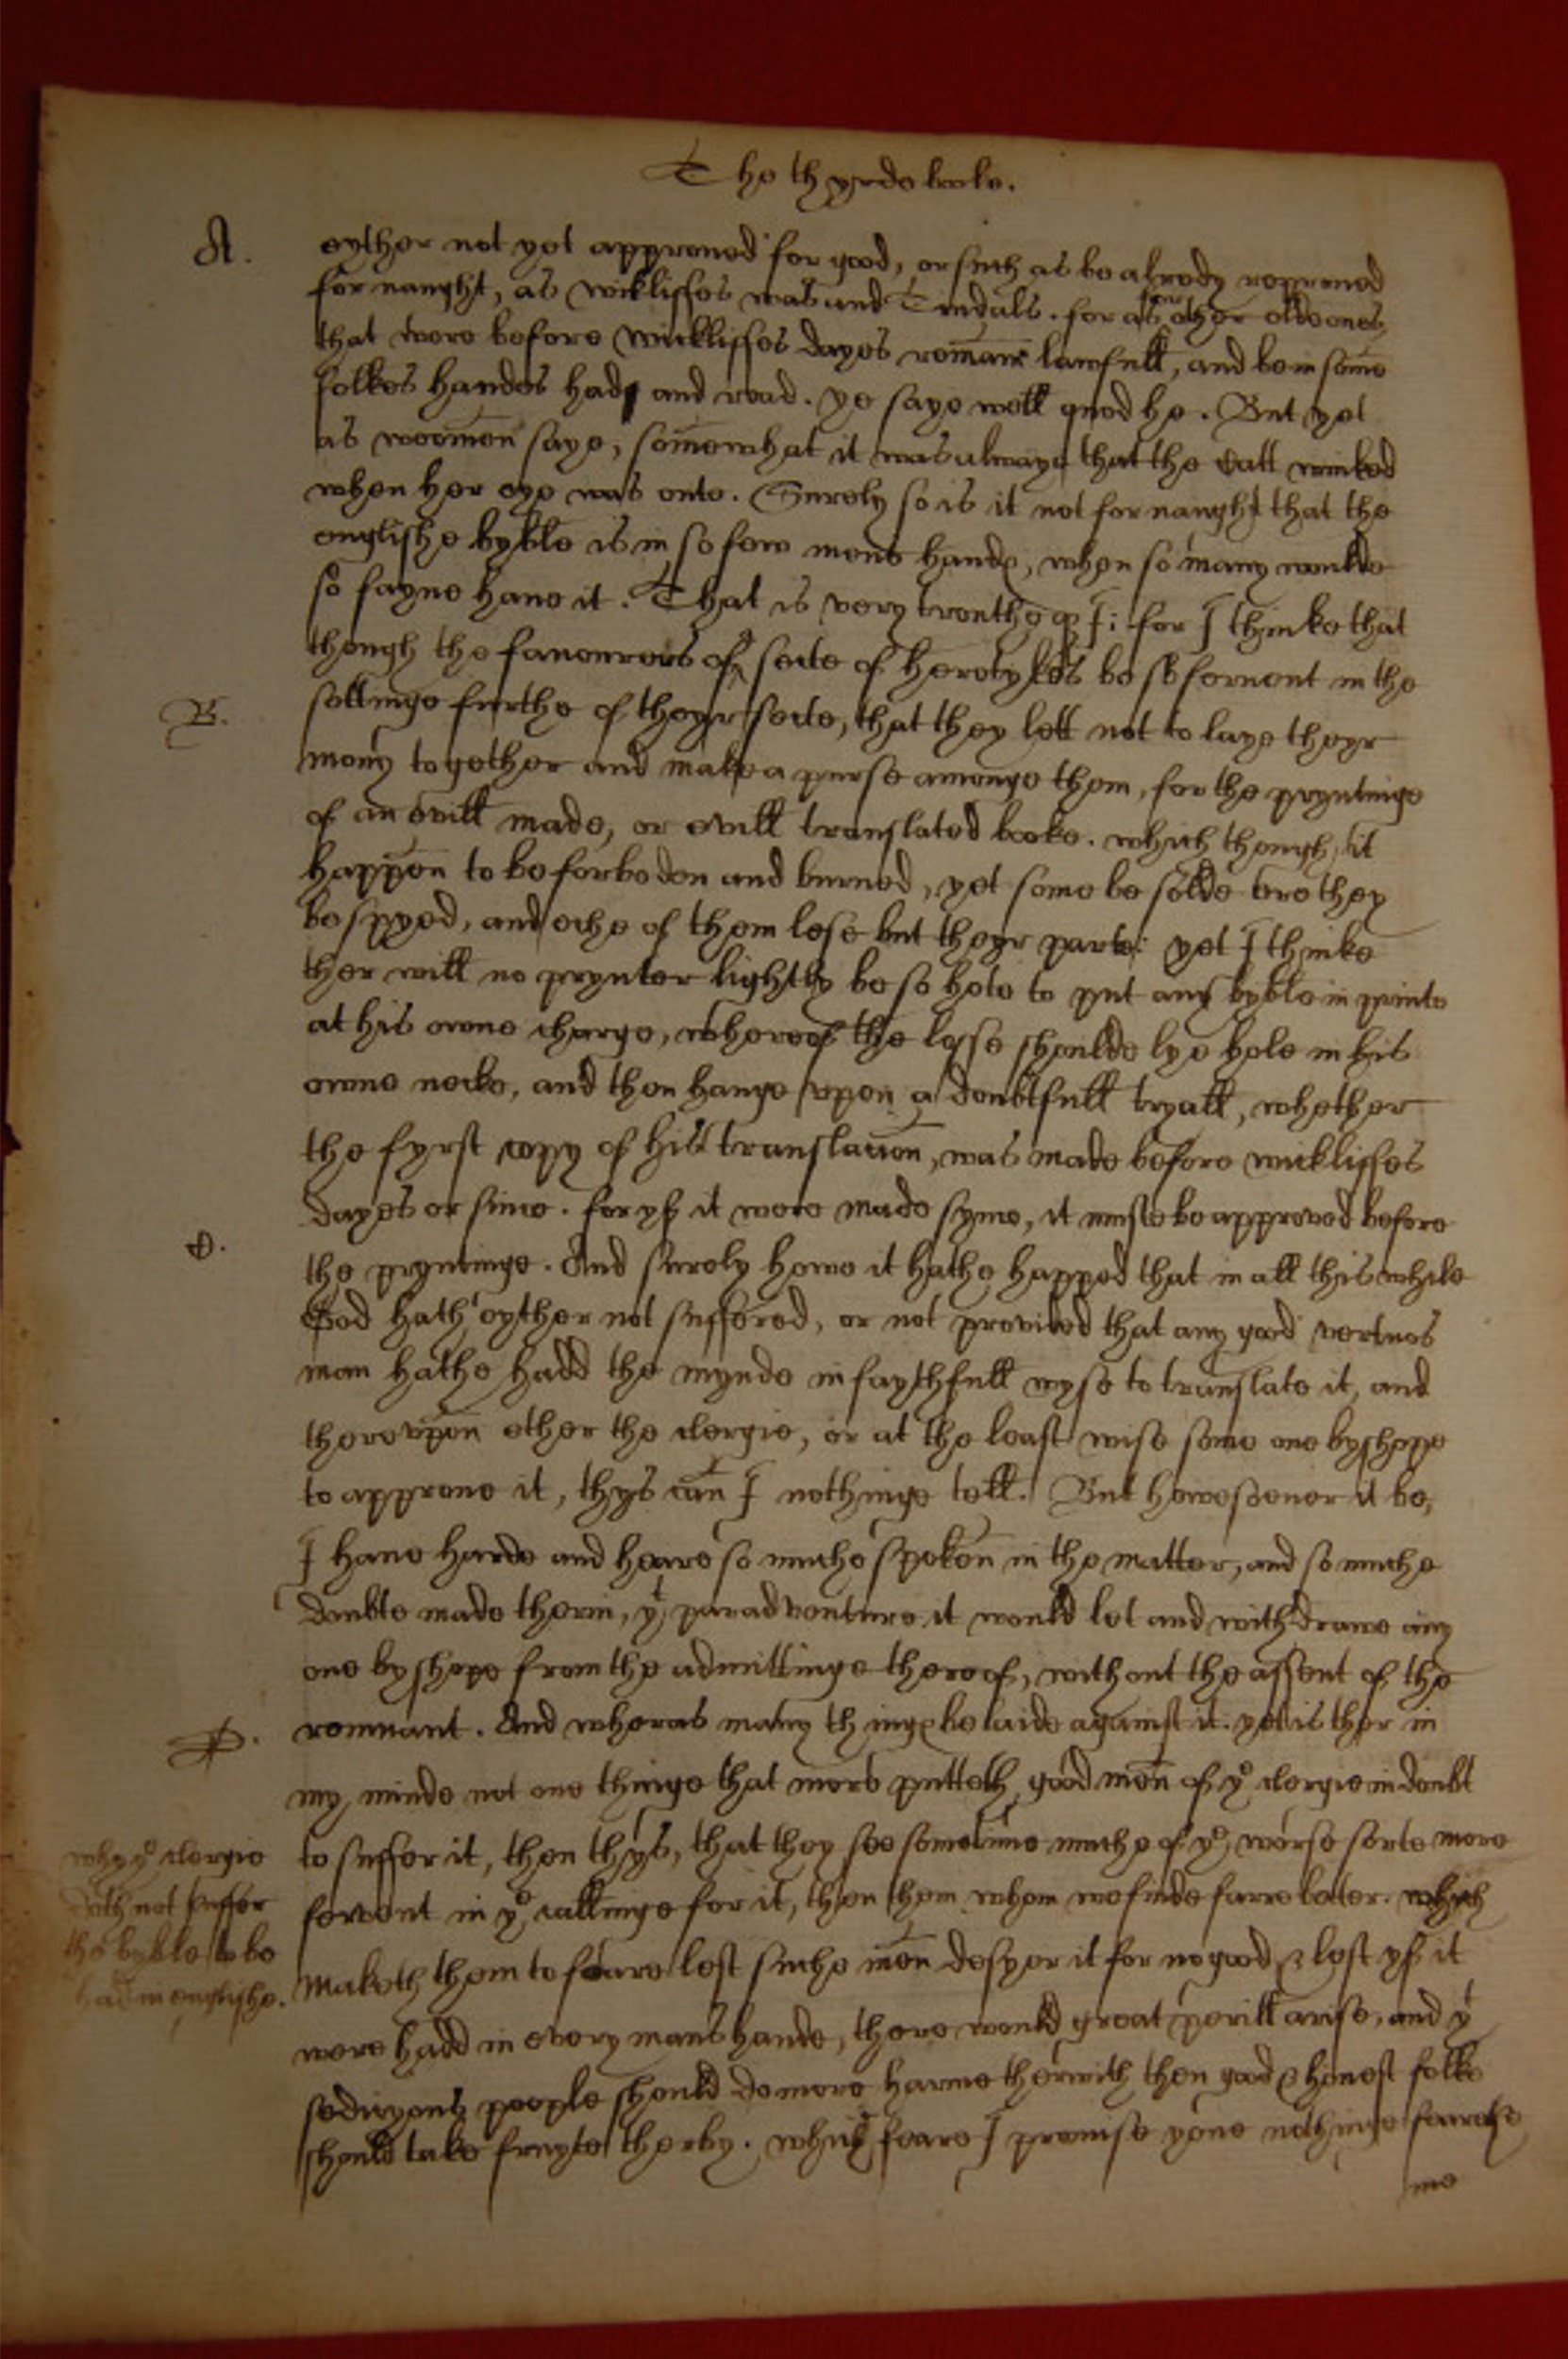 The thyrde boke.
A.
eyther not yet approued for good, or such as be alredy reproued
for naught, as wickliffes was and Tindals. for as for other olde ones
that were before wickliffes dayes remain lawfull, and be in some
folkes handes had and read. ye saye well quod he. But yet
as woomen saye, somewhat it was alwaye that the Catt winked
when her eye was oute. Surely so is it not for naught that the
englishe byble is in so few mens hande, when so many woulde
so fayne haue it. That is very trouthe qz I: for I thinke that
though the fauourers of a secte of heretykes be so feruent in the
B.
settinge furthe of theyr secte, that they lett not to laye theyr
mony together and make a purse amonge them, for the pryntinge
of an evill made, or evill translated booke. which though it
happen to be forboden and burned, yet some be solde ere they
be spyed, and eche of them lese but theyr parte: yet I thinke
ther will no prynter lightly be so hote to put any byble in printe
at his owne charge, whereof the losse shoulde lye hole in his
owne necke, and then hange vpon a doubtfull tryall, whether
the fyrst copy of his translacion, was made before wickliffes
dayes or since. for yf it were made synce, it muste be approved before
C.
the pryntinge. And surely howe it hathe happed that in all this while
God hath eyther not suffered, or not provided that any good vertuos
man hathe hadd the mynde in faythfull wyse to translate it, and
therevpon ether the clergie, or at the least wise some one byshope
to approue it, thys can I nothinge tell. But howesoeuer it be,
I haue harde and heare so muche spoken in the matter, and so muche
doubte made therin, yt paradventure it would let and withdrawe any
one byshope from the admittinge thereof, without the assent of the
D.
remnant. And wheras many thinge be laide against it. yet is ther in
my minde not one thinge that more putteth good men of ye clergie in doubt
to suffer it, then thys, that they see sometime muche of ye worse sorte more
fervent in ye callinge for it, then them whom we finde farre better. which
maketh them to feare lest suche men desyer it for no good, & lest yf it
were hadd in every mans hande, there would great perill arise, and yt
sedicyous people should do more harme therwith then good & honest folke
should take fruyte therby. which feare I promise you nothinge feareth
me
why ye clergie
doth not suffer
the byble to be
had in englishe.